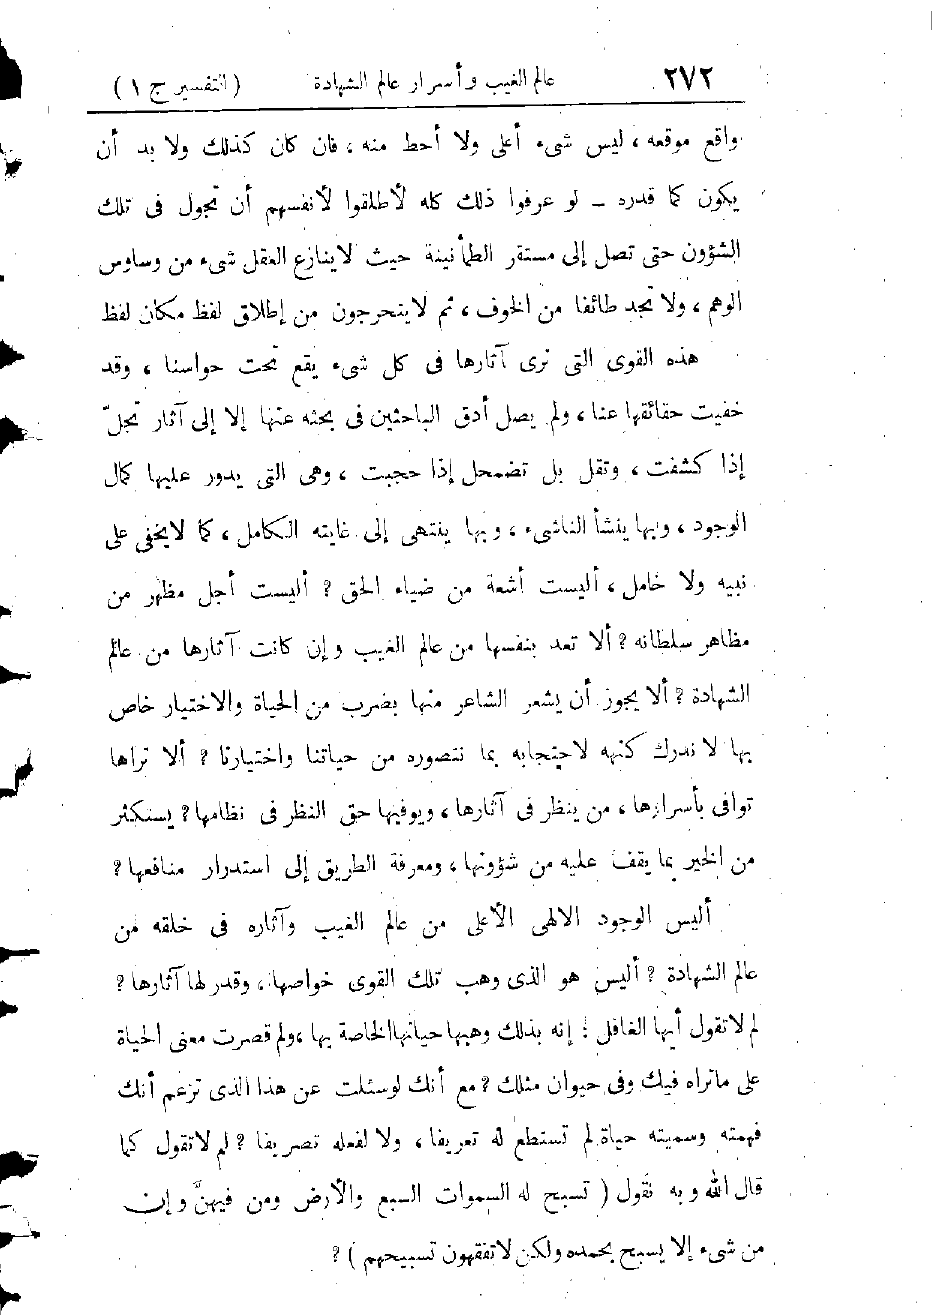 ٢٧٢ عالم الغيب وأسرار عالم الشهادة (التفسير ج ١)
واقع موقعه، ليس شىء أعلى ولا أحط منه، فان كان كذلك ولا بد أن
يكون كما قدره – لو عرفوا ذلك كله لأطلقوا لأنفسهم أن تجول فى تلك
الشؤون حتى تصل إلى مستقر الطمأنينة حيث لاينازع العقل شىء من وساوس
الوهم، ولا تجد طائفا من الخوف، ثم لايتحرجون من إطلاق لفظ مكان لفظ
هذه القوى التى ترى آثارها فى كل شىء يقع تحت حواسنا، وقد
خفيت حقائقها عنا، ولم يصل أدق الباحثين فى بحثه عنها إلا إلى آثار تجلّ
إذا كشفت، وتقل بل تضمحل إذا حجبت، وهى التى يدور عليها كمال
الوجود، وبها ينشأ الناشىء، وبها ينتهى إلى غايته الكامل، كما لايخفى على
نبيه ولا خامل، أليست أشعة من ضياء الحق؟ أليست أجل مظهر من
مظاهر سلطانه؟ ألا تعد بنفسها من عالم الغيب وإن كانت آثارها من عالم
الشهادة؟ ألا يجوز أن يشعر الشاعر منها بضرب من الحياة والاختيار خاص
بها لا ندرك كنهه لاحتجابه بما نتصوره من حياتنا واختيارنا؟ ألا تراها
توافى بأسرارها، من ينظر فى آثارها، ويوفيها حق النظر فى نظامها؟ يستكثر
من الخير بما يقف عليه من شؤونها، ومعرفة الطريق إلى استدرار منافعها؟
أليس الوجود الالهى الأعلى من عالم الغيب وآثاره فى خلقه من
عالم الشهادة؟ أليس هو الذى وهب تلك القوى خواصها، وقدر لها آثارها؟
لم لاتقول أيها الغافل! إنه بذلك وهبها حياتهاالخاصة بها، ولم قصرت معنى الحياة
على ماتراه فيك وفى حيوان مثلك؟ مع أنك لوسئلت عن هذا الذى تزعم أنك
فهمته وسميته حياة لم تستطع له تعريفا، ولا لفعله تصريفا؟ لم لاتقول كما
قال الله وبه نقول (تسبح له السموات السبع والأرض ومن فيهنّ وإن
من شىء إلا يسبح بحمده ولكن لاتفقهون تسبيحهم)؟